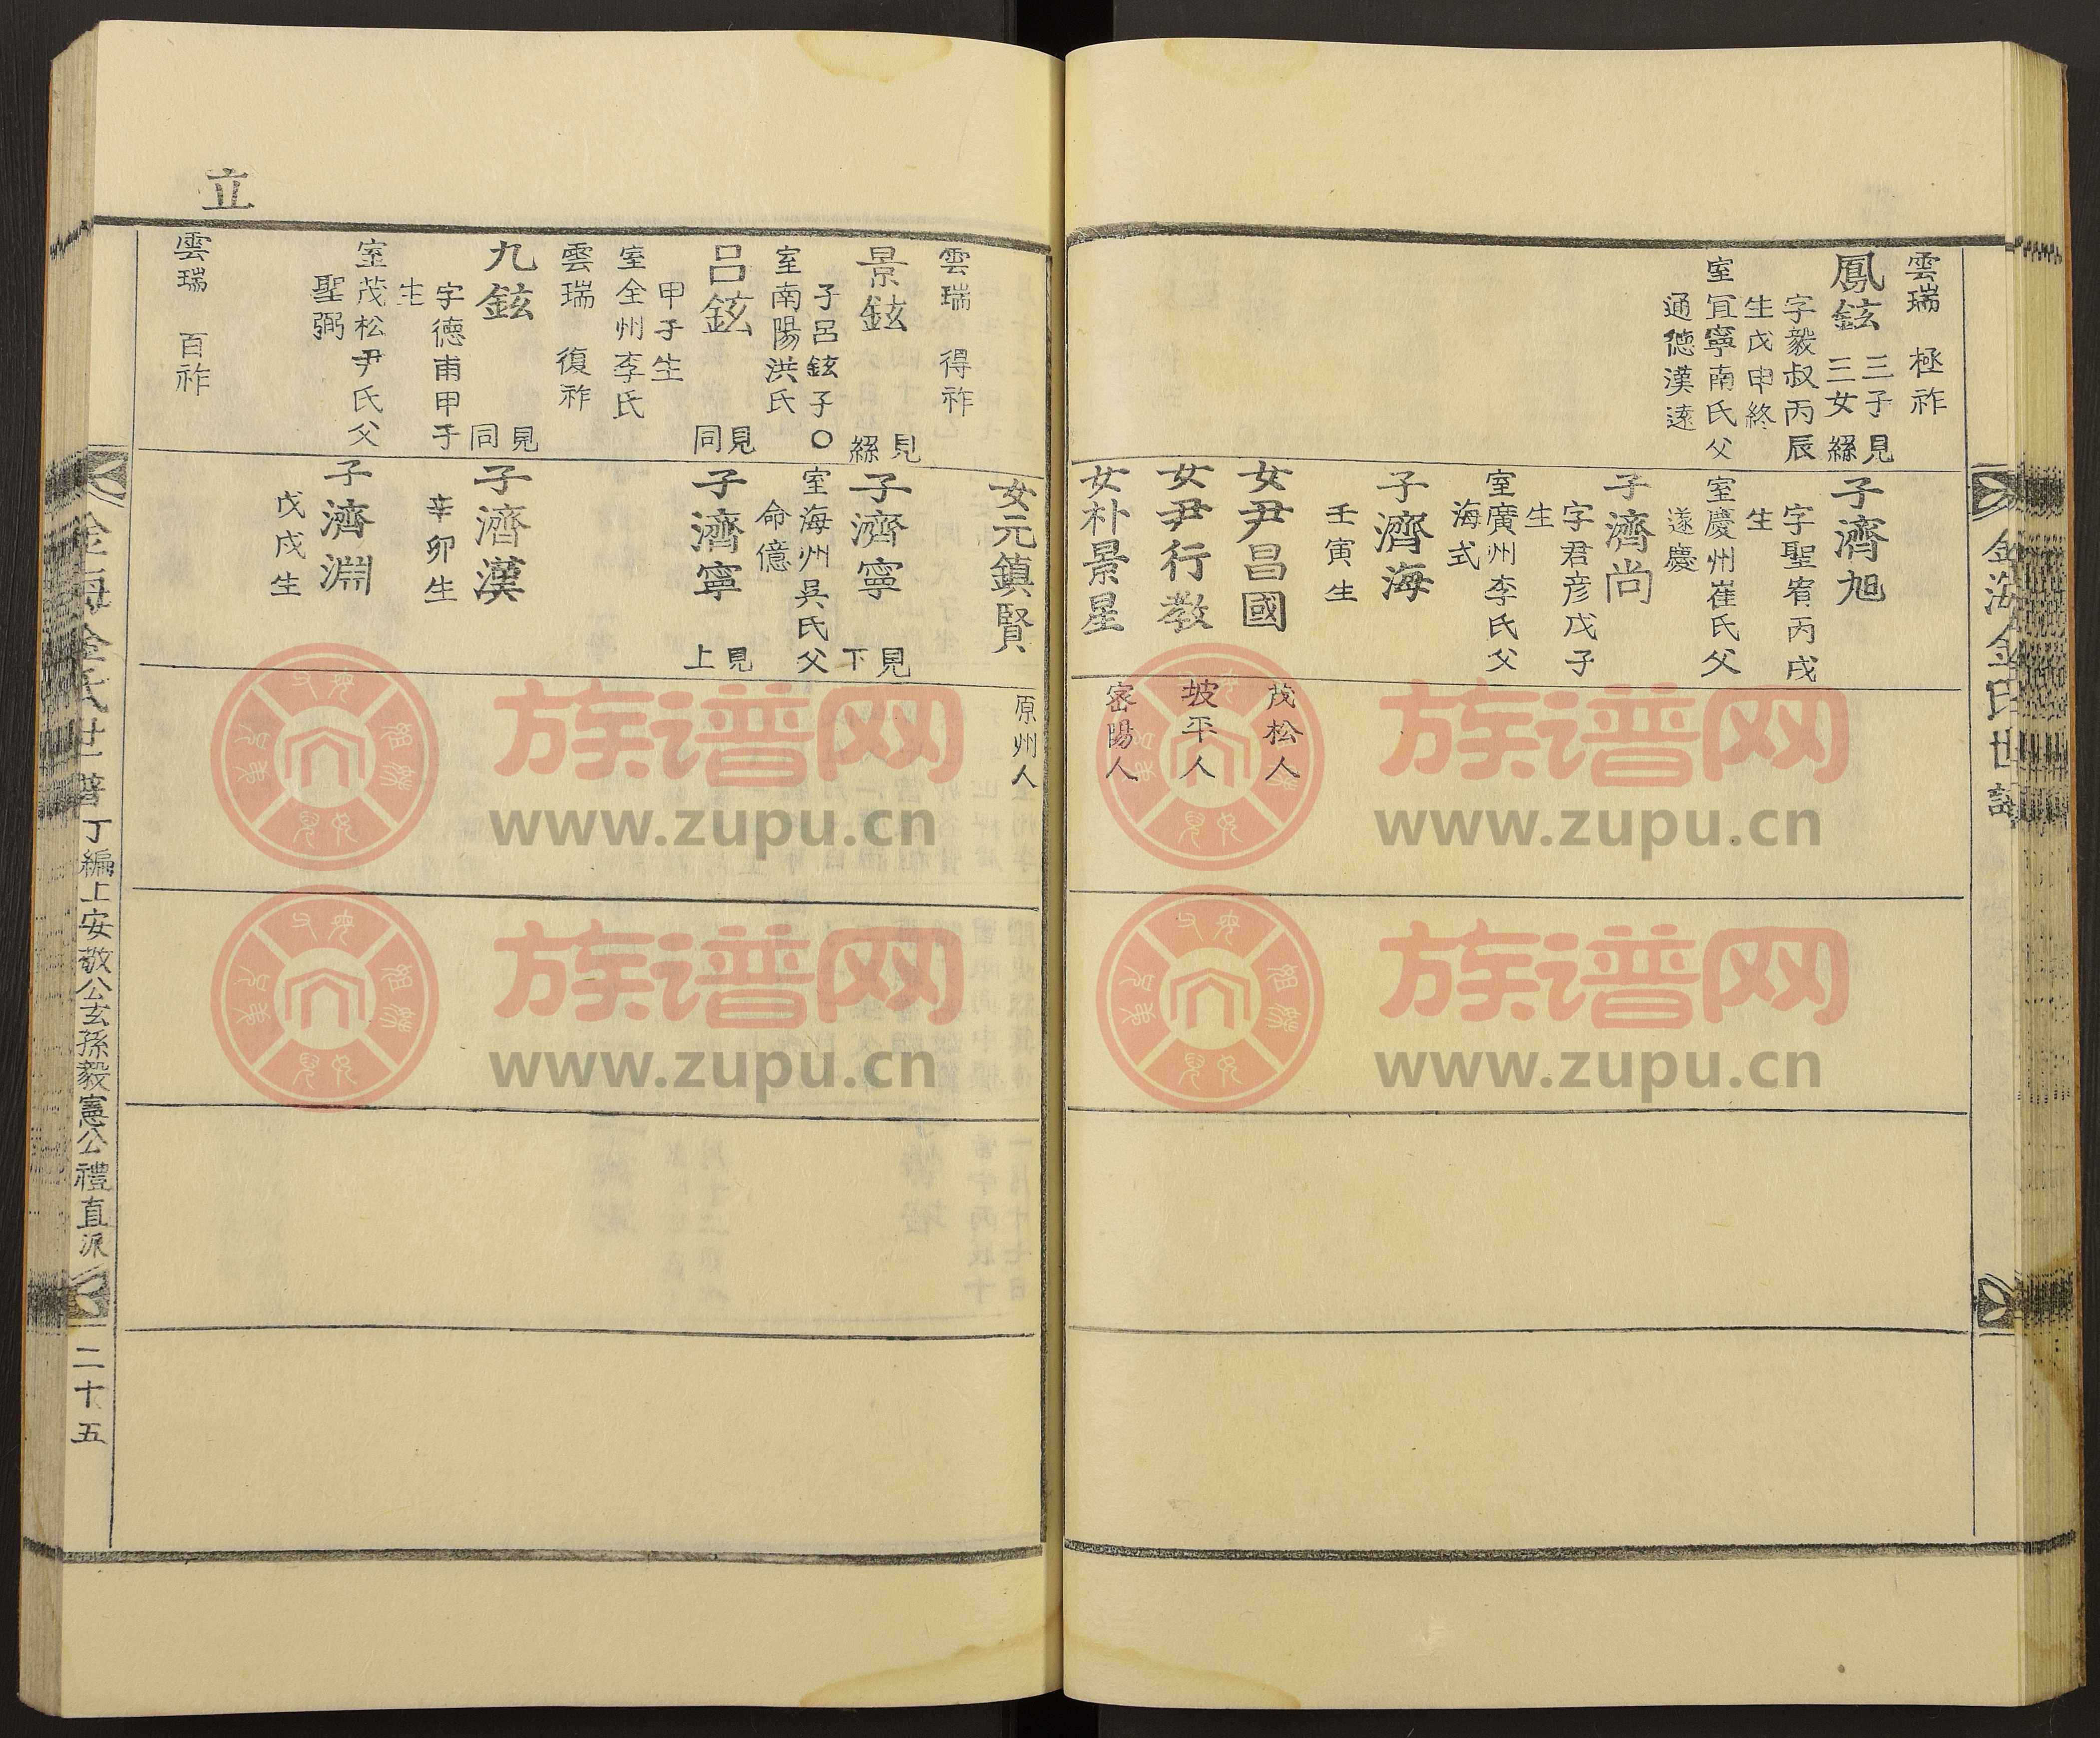 金海金氏世譜
雲瑞 極祚
鳳鉉 三子 三女 見 繇
字毅叔丙辰
生戊申終
室宜寧南氏父
通德漢遠
子濟旭
字聖宥丙戌
生
室慶州崔氏父
遂慶
子濟尚
字君彦戊子
生
室廣州李氏父
海式
子濟海
壬寅生
女尹昌國
茂松人
女尹行教
坡平人
女朴景星
密陽人
女元鎮賢
原州人
雲瑞 得祚
景鉉 見 繇
子呂鉉子○
室南陽洪氏
子濟寧 見下
室海州吳氏父
命億
呂鉉 見同
甲子生
室全州李氏
子濟寧 見上
雲瑞 復祚
九鉉 見同
字德甫甲子
生
室茂松尹氏父
聖弼
子濟漢
辛卯生
子濟淵
戊戌生
雲瑞 百祚
立
金海金氏世譜 丁編上安敬公玄孫毅憲公禮直派 二十五
族谱网
www.zupu.cn
族谱网
www.zupu.cn
族谱网
www.zupu.cn
族谱网
www.zupu.cn